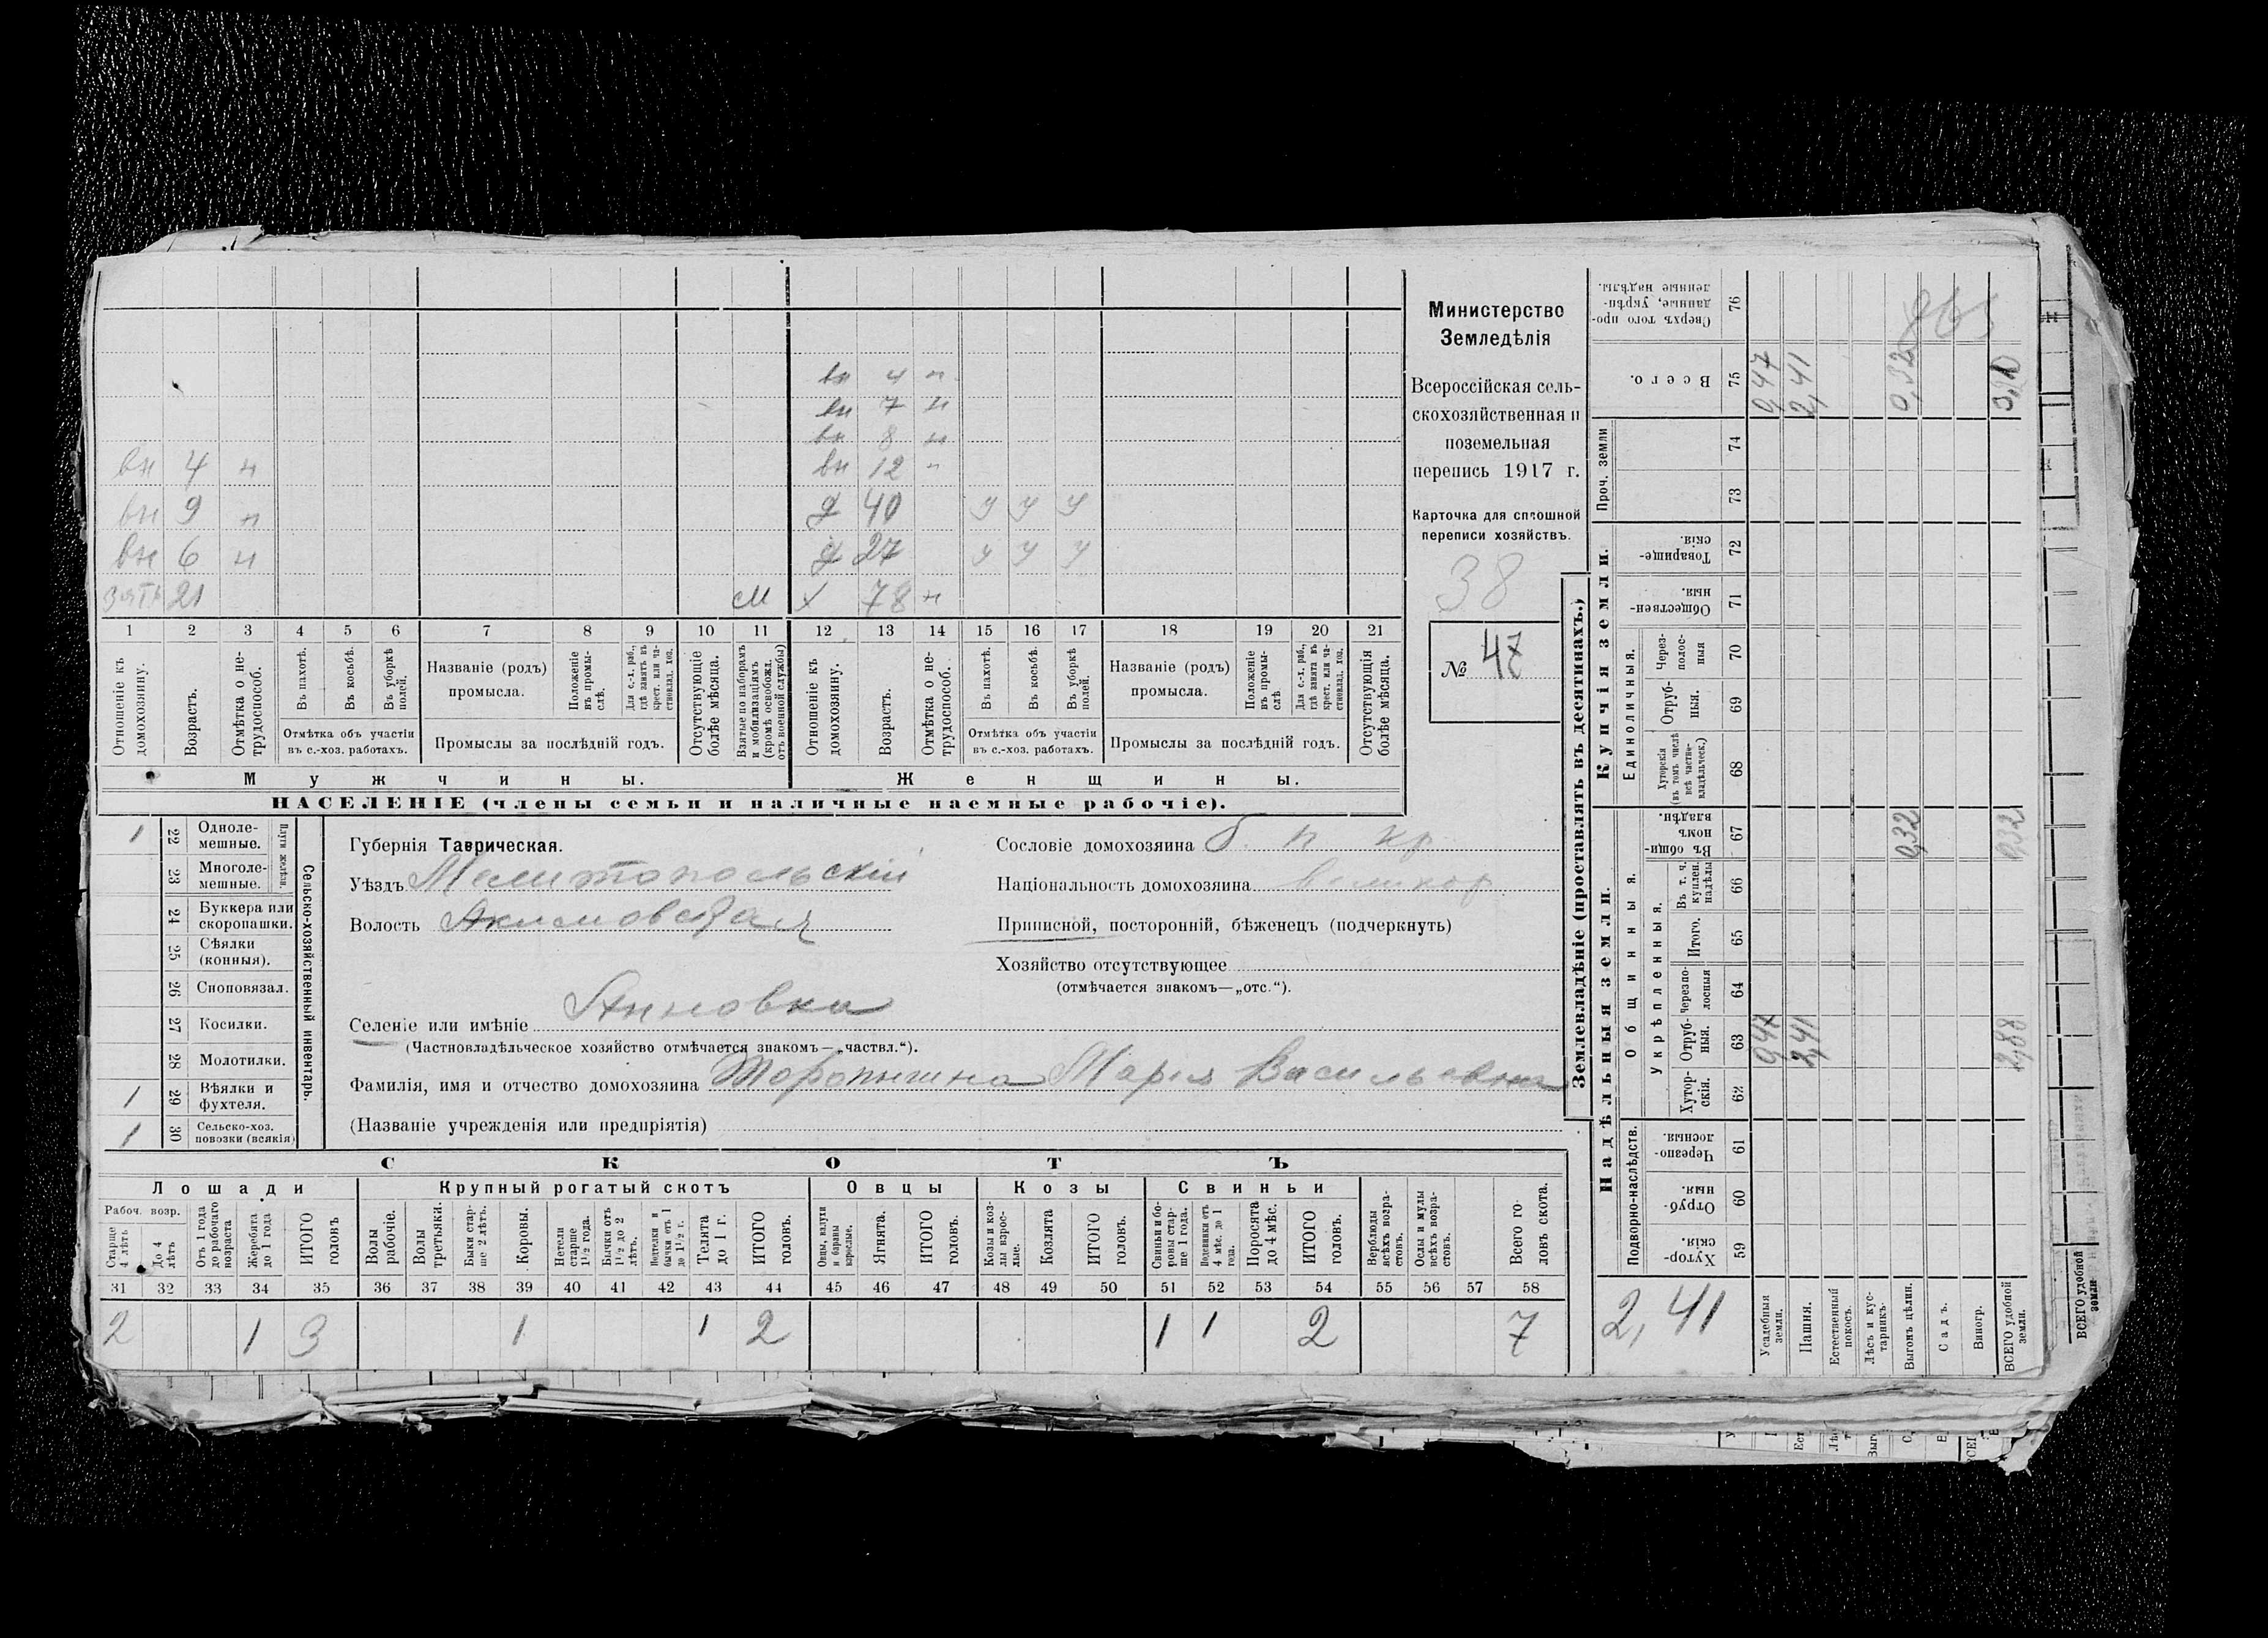 Министерство
Земледѣлія
Всероссійская сель-
скохозяйственная и
поземельная
перепись 1917 г.
Карточка для сплошной
переписи хозяйствъ.
38
№ 47
вн 4 н
вн 7 н
вн 8 н
вн 4 н вн 12 н
вн 9 н д 40 у у у
вн 6 н д 27 у у у
зять 21 м х 78 н
1 2 3 4 5 6 7 8 9 10 11 12 13 14 15 16 17 18 19 20 21
Отношеніе къ домохозяину.
Возрастъ.
Отмѣтка о не-
трудоспособ.
Въ пахотѣ.
Въ косьбѣ.
Въ уборкѣ полей.
Отмѣтка объ участіи
въ с.-хоз. работахъ.
Названіе (родъ)
промысла.
Положеніе въ промы-
слѣ.
Для с.-х. раб.,
гдѣ занятъ въ
крест. или ча-
стновлад. хоз.
Промыслы за послѣдній годъ.
Отсутствующіе
болѣе мѣсяца.
Взятые по наборамъ
и мобилизаціямъ
(кромѣ освобожд.
отъ военной службы)
Отношеніе къ
домохозяину.
Возрастъ.
Отмѣтка о не-
трудоспособ.
Въ пахотѣ.
Въ косьбѣ.
Въ уборкѣ
полей.
Отмѣтка объ участіи
въ с.-хоз. работахъ.
Названіе (родъ)
промысла.
Положеніе
въ промы-
слѣ.
Для с.-х. раб.,
гдѣ занята въ
крест. или ча-
стновлад. хоз.
Промыслы за послѣдній годъ.
Отсутствующія
болѣе мѣсяца.
Мужчины. Женщины.
НАСЕЛЕНІЕ (члены семьи и наличные наемные рабочіе).
1 22 Одноле-
мешные.
23 Многоле-
мешные.
Плуги желѣзн.
24 Буккера или
скоропашки.
25 Сѣялки
(конныя).
26 Сноповязал.
27 Косилки.
28 Молотилки.
1 29 Вѣялки и
фухтеля.
1 30 Сельско-хоз.
повозки (всякія)
Сельско-хозяйственный инвентарь.
Губернія Таврическая.
Уѣздъ Мелитопольскій
Волость Акимовская
Селеніе или имѣніе Анновка
(Частновладѣльческое хозяйство отмѣчается знакомъ—„частвл.“).
Фамилія, имя и отчество домохозяина Торопынина Марія Васильевна
(Названіе учрежденія или предпріятія)
Сословіе домохозяина б. п. кр.
Національность домохозяина великор.
Приписной, посторонній, бѣженецъ (подчеркнуть)
Хозяйство отсутствующее
(отмѣчается знакомъ—„отс.“).
СКОТЪ
Лошади Крупный рогатый скотъ Овцы Козы Свиньи
Рабоч. возр.
Старше
4 лѣтъ
До 4
лѣтъ
Отъ 1 года
до рабочаго
возраста
Жеребята
до 1 года
ИТОГО
головъ
Волы
рабочіе.
Волы
третьяки.
Быки стар-
ше 2 лѣтъ.
Коровы.
Нетели
старше
1½ года.
Бычки отъ
1½ до 2
лѣтъ.
Подтелки и
бычки отъ 1
до 1½ г.
Телята
до 1 г.
ИТОГО
головъ.
Овцы, валухи
и бараны
взрослые.
Ягнята.
ИТОГО
головъ.
Козы и коз-
лы взрос-
лые.
Козлята
ИТОГО
головъ.
Свиньи и бо-
ровы стар-
ше 1 года.
Подсвинки отъ
4 мѣс. до 1
года.
Поросята
до 4 мѣс.
ИТОГО
головъ.
Верблюды
всѣхъ возра-
стовъ.
Ослы и мулы
всѣхъ возра-
стовъ.
Всего го-
ловъ скота.
31 32 33 34 35 36 37 38 39 40 41 42 43 44 45 46 47 48 49 50 51 52 53 54 55 56 57 58
2 1 3 1 1 2 1 1 2 7
Землевладѣніе (проставлять въ десятинахъ.)
Надѣльныя земли. Купчія земли.
Подворно-наслѣдств.
Общинныя.
Укрѣпленныя.
Единоличныя.
Проч. земли
Хутор-
скія. 59
Отруб-
ныя. 60
Черезпо-
лосныя. 61
Хутор-
скія. 62
Отруб-
ныя. 63
Черезпо-
лосныя 64
Итого. 65
Въ т. ч.
куплен.
надѣлы 66
Въ общин-
номъ
владѣн. 67
Хуторскія
(въ томъ числѣ
всѣ частно-
владѣльческ.) 68
Отруб-
ныя. 69
Через-
полос-
ныя 70
Обществен-
ныя. 71
Товарище-
скія. 72
73
74
Всего. 75
Сверхъ того про-
данные, укрѣп-
ленные надѣлы. 76
2,41
Усадебныя
земли. 0,47 0,47
Пашня. 2,41 2,41
Естественный
покосъ.
Лѣсъ и кус-
тарникъ.
Выгонъ цѣлин. 0,32 0,32
Садъ.
Виногр.
ВСЕГО удобной
земли. 2,88 0,32
ВСЕГО удобной
земли